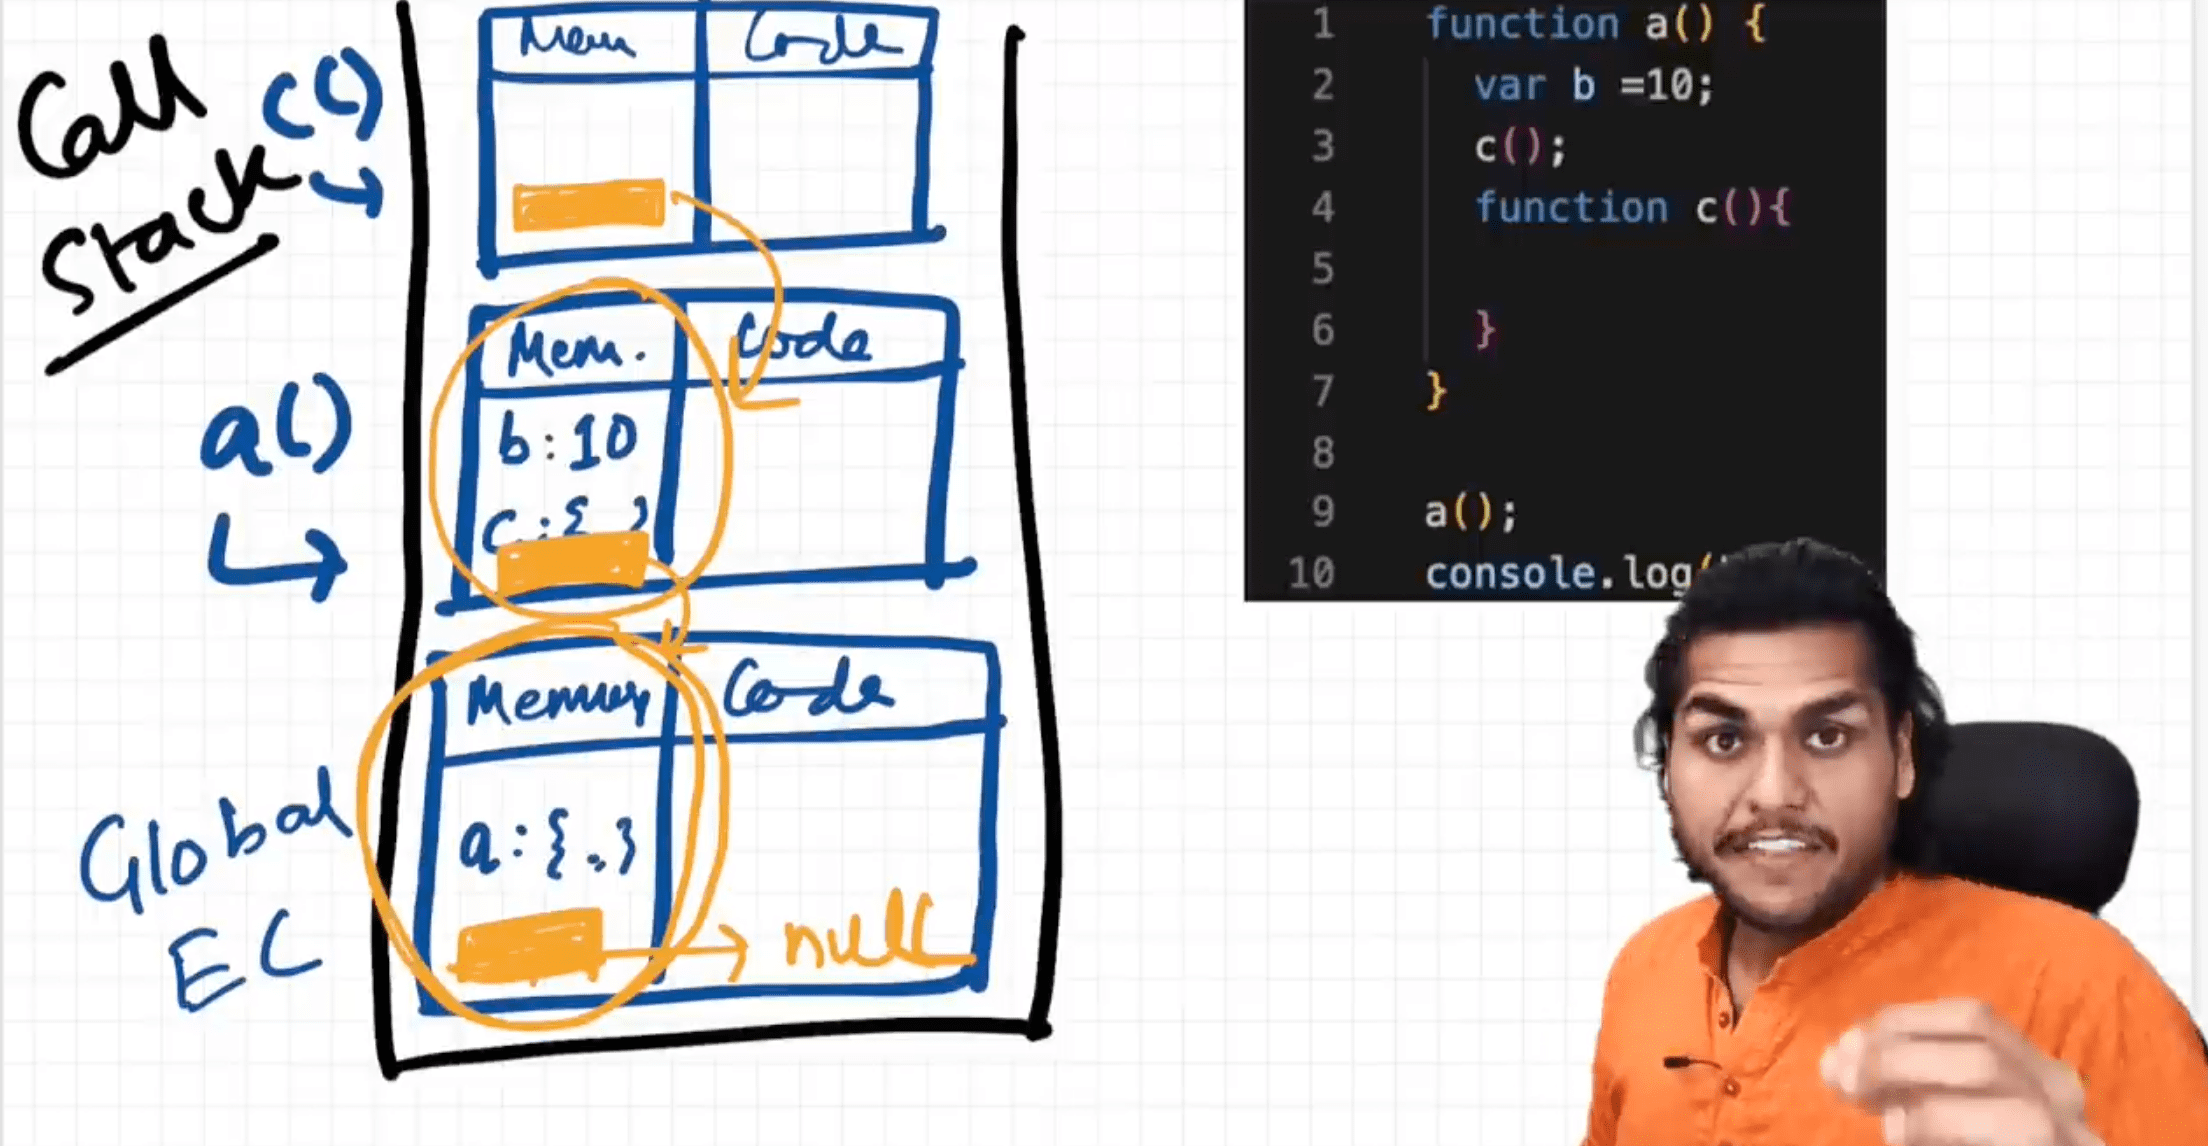 Call
Stack
c()
Mem
Code
a()
Mem.
Code
b:10
c:{
Global
EC
Memory
Code
a:{.,}
null
1 function a() {
2 var b =10;
3 c();
4 function c(){
5
6 }
7 }
8
9 a();
10 console.log(